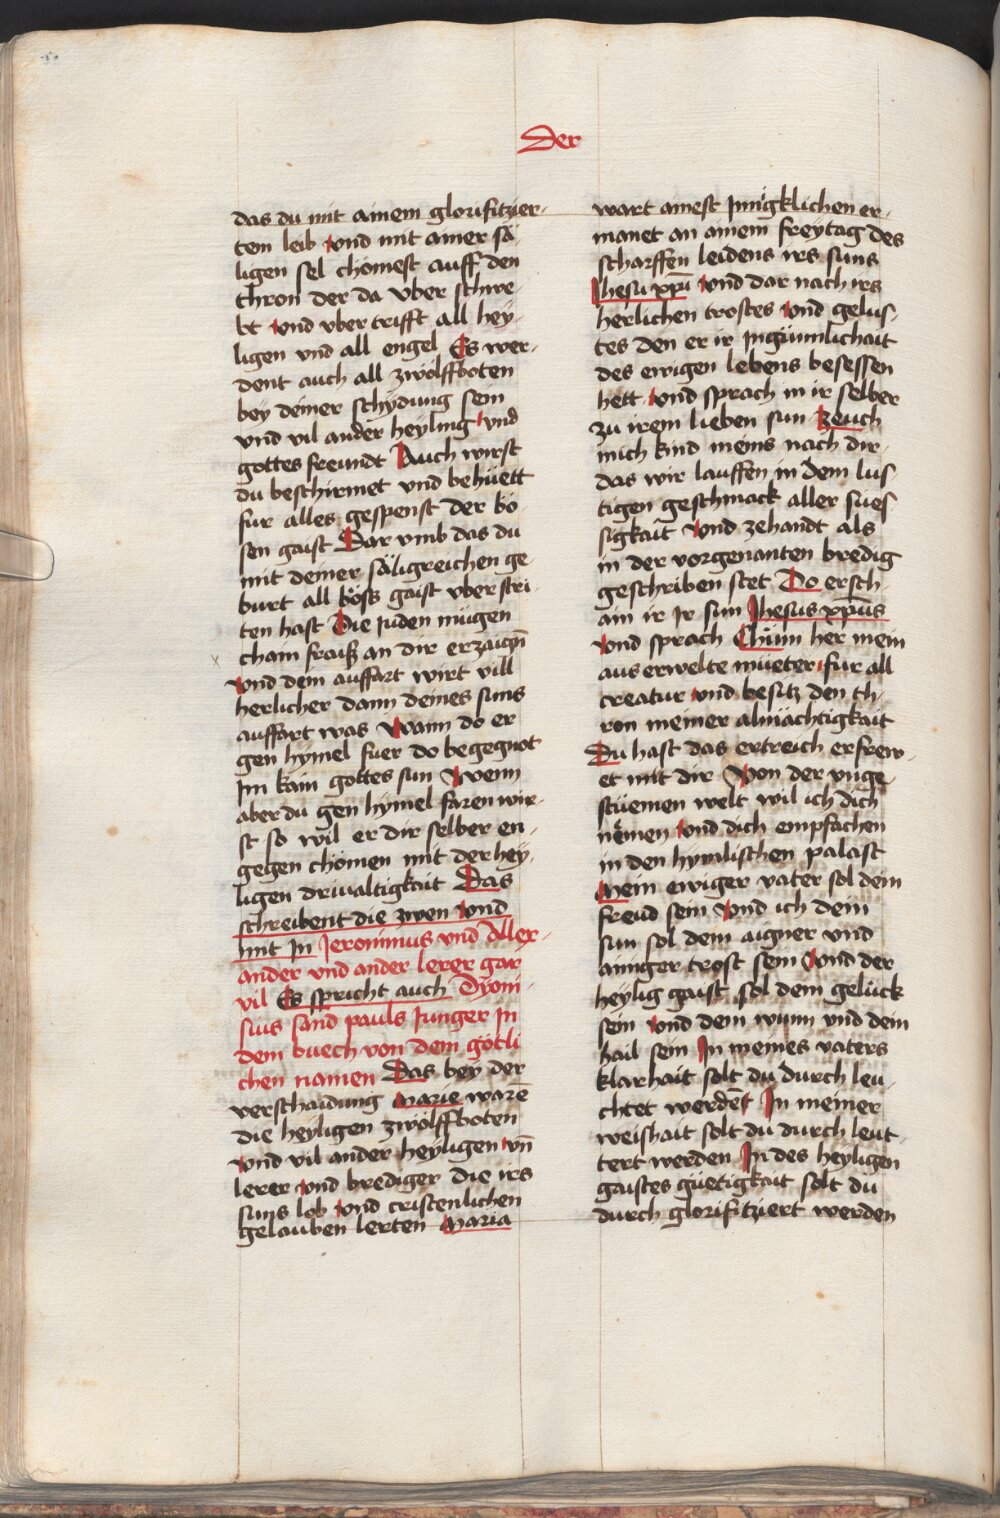 Der
das du mit ainem glorifitzier-
tem leib vnd mit ainer sä-
ligen sel chömest auff den
thron der da vber schwe-
bt vnd vber trifft all hey-
ligen vnd all engel Es wer-
dent auch all zwölffboten
bey deiner schydung sein
vnd vil ander heyling vnd
gottes freundt Auch wirst
du beschirmet vnd behüett
fur alles gespenst der bö-
sen gaist Dar vmb das du
mit deiner säligreichen ge
burt all böss gaist vber stri-
ten hast Die iuden mügen
chain fraiß an dir erzaign̄
vnd dem auffart wirt vill
herlicher dann deines suns
auffart was Wann do er
gen hymel fuer do begegnot
Im kain gottes sun Wenn
aber du gen hymel faren wir-
st so wil er dir selber en-
gegen chömen mit der hey-
ligen driualtigkait Das
schreibent die zwen vnd
mit In Jeronimus vnd Aller-
ander vnd ander lerer gar
vil Es spricht auch Dyoni-
sius sand pauls Junger In
dem buech von dem götli
chen namen Das bey der
verschaidung Marie warē
die heyligen zwölffboten
vnd vil ander heyligen vn̄
lerer vnd brediger die irs
suns lob vnd cristenlichen
gelauben lerten Maria
wart ainest Innigklichen er-
manet an ainem freytag des
scharffen leidens irs suns
Jhesu xp̄i vnd dar nach irs
herlichen trostes vnd gelus-
tes den er ir Ingünnlichait
des ewigen lebens besessen
hett vnd sprach in ir selber
zu irem lieben sun Zeuch
mich kind meins nach dir
das wir lauffen in dem lus-
tigen geschmack aller sues-
sigkait Vnd zehandt als
in der vorgenanten bredig
geschriben stet Do ersch-
ain ir Ir sun Jhesus xp̄us
vnd sprach Chüm her mein
aus erwelte müeter fur all
creatur vnd besitz den th-
ron meiner almächtigkait
Du hast das ertreich erfrew-
et mit dir Von der vnge-
stüemen welt wil ich dich
nemen vnd dich empfachen
in den hymlischen palast
Mein ewiger vater sol dein
freud sein Vnd ich dein
sun sol dem aigner vnd
ainiger trost sein Vnd der
heylig gaist sol dem gelück
sein vnd dem wunn vnd dein
hail sein In meines vaters
klarhait solt du durch leu-
chtet werdēt In meiner
weishait solt du durch leut-
tert werden In des heyligen
gaistes güetigkait solt du
durch glorifitziert werden